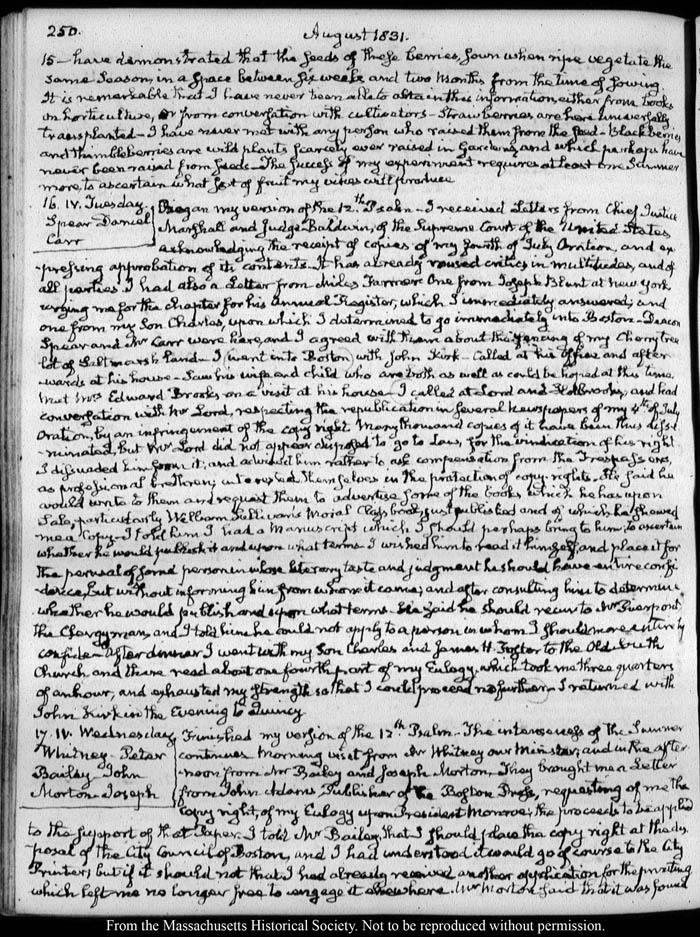 250.
August 1831.
15 - have demonstrated that the seeds of these berries, sown when ripe vegetate the
same season, in a space between six weeks and two months from the time of sowing.
It is remarkable that I have never been able to obtain this information, either from books
on horticulture, or from conversation with cultivators - Strawberries are here universally
transplanted - I have never met with any person who raised them from the seed - Blackberries
and thimbleberries are wild plants scarcely ever raised in Gardens, and which perhaps have
never been raised from seeds - The success of my experiment requires at least one Summer
more, to ascertain what sort of fruit my vines will produce
16. IV. Tuesday.
Spear Daniel
Carr
Began my version of the 12th Psalm - I received Letters from Chief Justice
Marshall and Judge Baldwin, of the Supreme Court of the United States
acknowledging the receipt of copies of my fourth of July Oration, and ex-
-pressing approbation of its contents. It has already roused critics in multitudes, and of
all parties. I had also a Letter from Miles Farmer. One from Joseph Blunt at New York
urging me for the Chapter for his Annual Register; which I immediately answered; and
one from my Son Charles, upon which I determined to go immediately into Boston - Deacon
Spear and Mr Carr were here, and I agreed with them about the fencing of my Cherry tree
lot of Salt marsh land - I went into Boston, with John Kirk - Called at his Office and after-
-wards at his house - Saw his wife and child who are both as well as could be hoped at this time
Met Mrs Edward Brooks on a visit at his house - I called at Lord and Holbrook's, and had
conversation with Mr Lord, respecting the republication in several Newspapers of my 4th of July
Oration, by an infringement of the copy right. Many thousand copies of it have been thus disse-
-minated, but Mr Lord did not appear disposed to go to Law, for the vindication of his right
I dissuaded him from it; and advised him rather to ask compensation from the Trespassers,
as professional brethren, interested themselves in the protection of copy-rights. He said he
would write to them and request them to advertise some of the books which he has upon
Sale, particularly William Sullivan's Moral Class book, just published and of which he shewed
me a Copy - I told him I had a Manuscript which I should perhaps bring to him, to ascertain
whether he would publish it and upon what terms - I wished him to read it himself, and place it for
the perusal of some person in whose literary taste and judgment he should have entire confi-
-dence, but without informing him from whom it came; and after consulting him to determine
whether he would publish and upon what terms. He said he should recur to Mr Pierpont
the Clergyman, and I told him he could not apply to a person in whom I should more entirely
confide - After dinner I went with my Son Charles and James H. Foster to the Old South
Church, and there read about one fourth part of my Eulogy, which took me three quarters
of an hour, and exhausted my strength so that I could proceed no further - I returned with
John Kirk in the Evening to Quincy
17. IV. Wednesday,
Whitney - Peter
Bailey - John
Morton - Joseph
Finished my version of the 12th Psalm - The intenseness of the Summer
continues. Morning visit from Mr Whitney our Minister; and in the after-
-noon from Mr Bailey and Joseph Morton. They brought me a Letter
from John Adams Publisher of the Boston Press, requesting of me the
Copy right, of my Eulogy upon President Monroe; the proceeds to be applied
to the support of that Paper. I told Mr Bailey, that I should place the copy right at the dis-
-posal of the City Council of Boston, and I had understood it would go of course to the City
Printer; but if it should not that I had already received another application for the printing
which left me no longer free to engage it elsewhere. Mr Morton said that it was found
From the Massachusetts Historical Society. Not to be reproduced without permission.